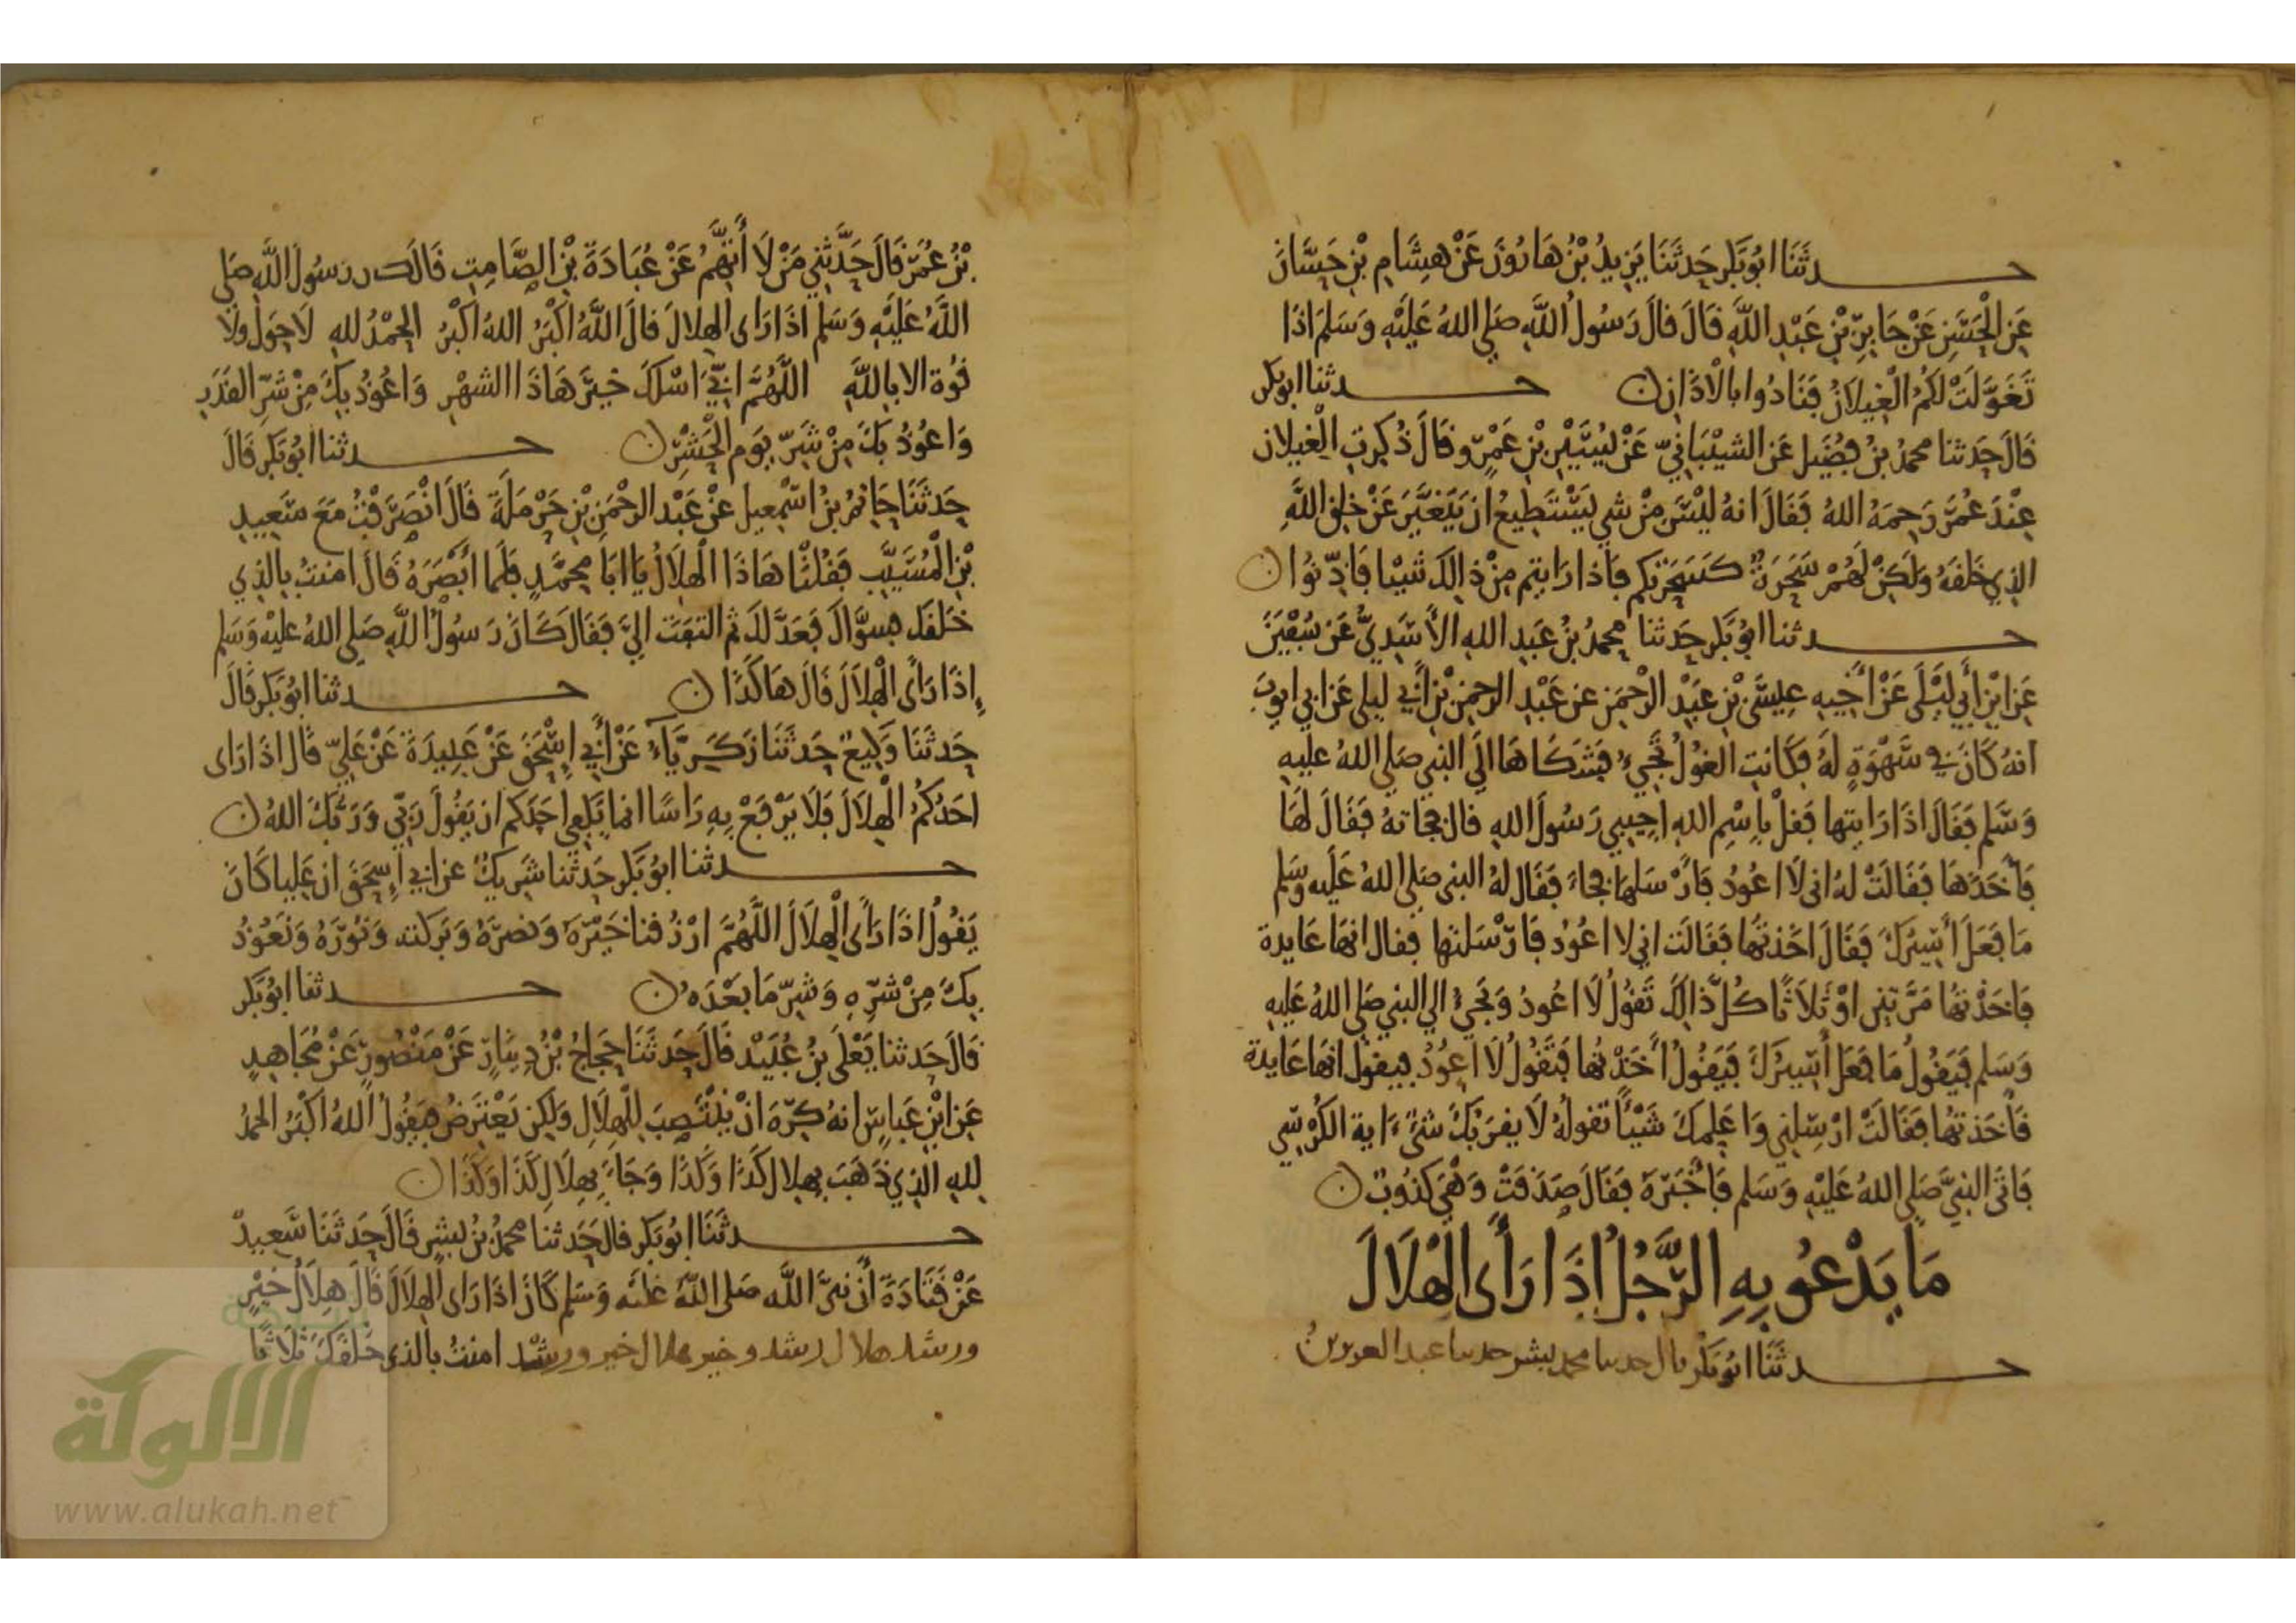 حدثنا ابو بكر حدثنا يزيد بن هارون عن هشام بن حسان
عن الحسن عن جابر بن عبد الله قال قال رسول الله صلى الله عليه وسلم اذا
تغولت لكم الغيلان فنادوا بالاذان ن حدثنا ابو بكر
قال حدثنا محمد بن فضيل عن الشيباني عن يسير بن عمرو قال ذكرت الغيلان
عند عمر رحمه الله فقال انه ليس من شي يستطيع ان يتغير عن خلق الله
الذي خلقه ولكن لهم سحرة كسحرتكم فاذا رايتم من ذالك شيا فاذنوا ن
حدثنا ابو بكر حدثنا محمد بن عبد الله الأسدي عن سفين
عن ابن أبي ليلى عن أخيه عيسى بن عبد الرحمن عن عبد الرحمن بن أبي ليلى عن ابي ايوب
انه كان في سهوة له فكانت الغول تجيء فشكاها الى النبي صلى الله عليه
وسلم فقال اذا رايتها فقل باسم الله اجيبي رسول الله قال فجاته فقال لها
فأخذها فقالت له اني لا اعود فأرسلها فجاء فقال له النبي صلى الله عليه وسلم
ما فعل أسيرك فقال اخذتها فقالت اني لا اعود فارسلتها فقال انها عايدة
فاخذتها مرتين او ثلاثا كل ذالك تقول لا اعود ويجيء الى النبي صلى الله عليه
وسلم فيقول ما فعل أسيرك فيقول أخذتها فتقول لا اعود فيقول انها عايدة
فأخذتها فقالت ارسلني واعلمك شيئا تقوله لا يقربك شيء ءاية الكرسي
فاتى النبي صلى الله عليه وسلم فأخبره فقال صدقت وهي كذوب ن
ما يدعو به الرجل إذا رأى الهلال
حدثنا ابو بكر قال حدثنا محمد بن بشر حدثنا عبد العزيز بن
بن عمر قال حدثني من لا أتهم عن عبادة بن الصامت قال كان رسول الله صلى
الله عليه وسلم اذا راى الهلال قال الله اكبر الله اكبر الحمد لله لا حول ولا
قوة الا بالله اللهم اني اسلك خير هاذا الشهر واعوذ بك من شر القدر
واعوذ بك من شر يوم الحشر ن حدثنا ابو بكر قال
حدثنا حاتم بن اسمعيل عن عبد الرحمن بن حرملة قال انصرفت مع سعيد
بن المسيب فقلنا هاذا الهلال يا ابا محمد فلما أبصره قال امنت بالذي
خلقك فسواك فعدلك ثم التفت الي فقال كان رسول الله صلى الله عليه وسلم
إذا راى الهلال قال هاكذا ن حدثنا ابو بكر قال
حدثنا وكيع حدثنا زكرياء عن أبي إسحق عن عبيدة عن علي قال اذا راى
احدكم الهلال فلا يرفع به راسا انما يكفي احدكم ان يقول ربي وربك الله ن
حدثنا ابو بكر حدثنا شريك عن ابي إسحق ان عليا كان
يقول اذا رأى الهلال اللهم ارزقنا خيره ونصره وبركته ونوره ونعوذ
بك من شره وشر ما بعده ن حدثنا ابو بكر
قال حدثنا يعلى بن عبيد قال حدثنا حجاج بن دينار عن منصور عن مجاهد
عن ابن عباس انه كره ان ينتصب للهلال ولكن يعترض فيقول الله اكبر الحمد
لله الذي ذهب بهلال كذا وكذا وجاء بهلال كذا وكذا ن
حدثنا ابو بكر قال حدثنا محمد بن بشر قال حدثنا سعيد
عن قتادة أن نبي الله صلى الله عليه وسلم كان اذا راى الهلال قال هلال خير
ورشد هلال رشد وخير هلال خير ورشد امنت بالذي خلقك ثلاثا
الالوكة
www.alukah.net